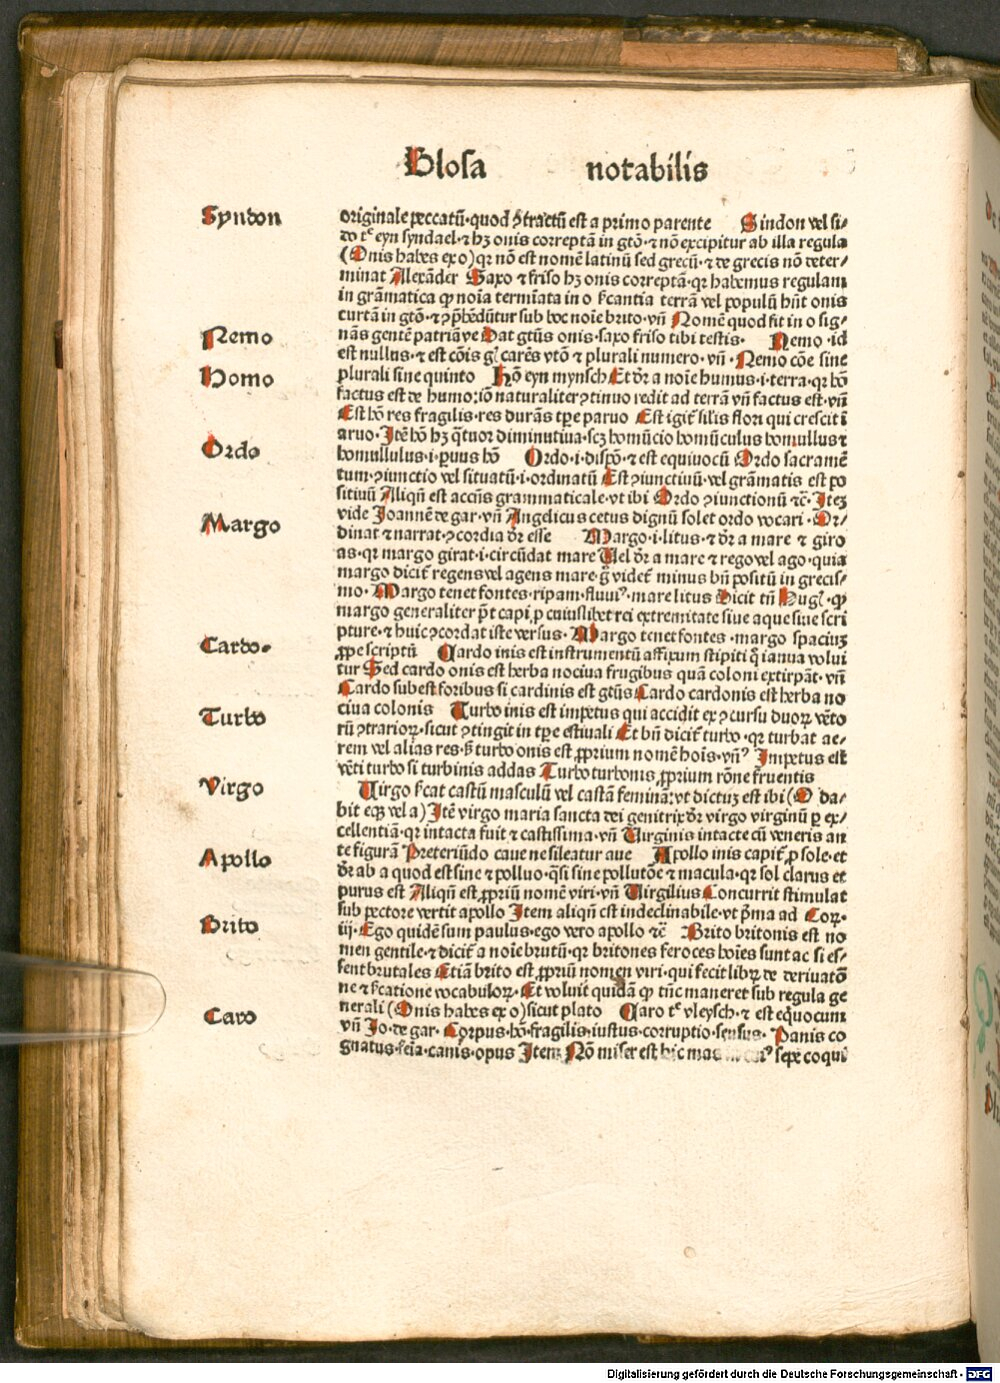 Glosa notabilis
Syndon
originale peccatū·quod ꝯtractū est a primo parente Sindon vel si⸗
do tᶜ eyn syndael·⁊ hꝫ onis correptā in gtō·⁊ nō excipitur ab illa regula
(Onis habes ex o) qꝛ nō est nomē latinū sed grecū·⁊ de grecis nō deter⸗
minat Allexāder Saxo ⁊ friso hꝫ onis correptā·qꝛ habemus regulam
in grāmatica ꝙ noīa termīata in o terrā vel populū hn̄t onis
curtā in gtō·⁊ sub hoc noīe brito·vn̄ Nomē quod fit in o sig⸗
Nemo
nās gentē patriāve Dat gtūs onis·saxo friso tibi testis· Nemo ·id
est nullus·⁊ est cōis carēs vtō ⁊ plurali numero·vn̄·Nemo cōe sine
Homo
plurali sine quinto Hō eyn mynsch Et dr̄ a noīe humus·i·terra·qꝛ hō
factus est de humo:iō naturaliter ꝯtinuo redit ad terrā vn̄ factus est·vn̄
Est hō res fragilis·res durās tꝑe paruo Est igit̄ silis flori qui crescit ī
aruo·Itē hō hꝫ q̄tuor diminutiua·scꝫ homūcio homūculus homullus ⁊
Ordo
homullulus·i·paruus hō Ordo·i·dispō·⁊ est equiuocū Ordo sacramē
tum·ꝯiunctio vel situatū·i·ordinatū Est ꝯiunctiuū·vel grāmatis est po
sitiuū Aliqn̄ est accn̄s grammaticale·vt ibi Ordo ꝯiunctionū ⁊c̄·Iteꝫ
Margo
vide Joannē de gar·vn̄ Angelicus cetus dignū solet ordo vocari·Or⸗
dinat ⁊ narrat·ꝯcordia dr̄ esse Margo·i·litus·⁊ dr̄ a mare ⁊ giro
as·qꝛ margo girat·i·circūdat mare Uel dr̄ a mare ⁊ rego vel ago·quia
margo dicit̄ regens vel agens mare·g̊ videt̄ minus bn̄ positū in grecis⸗
mo·Margo tenet fontes·ripam·fluuiꝰ·mare litus Dicit tn̄ Hug ·ꝙ
margo generaliter p̄t capi ꝑ cuiuslibet rei extremitate siue aque siue scri
Cardo·
pture·⁊ huic ꝯcordat iste versus·Margo tenet fontes·margo spaciuꝫ
ꝓpe scriptū Cardo inis est instrumentū affixum stipiti q̄ ianua volui
tur Sed cardo onis est herba nociua frugibus quā coloni extirpāt·vn̄
Cardo subest foribus si cardinis est gtūs Cardo cardonis est herba no
Turbo
ciua colonis Turbo inis est impetus qui accidit ex ꝯcursu duoꝝ vēto
rū ꝯtrarioꝝ·sicut ꝯtingit in tꝑe estiuali Et bn̄ dicit̄ turbo·qꝛ turbat ae⸗
rem vel alias res·ꝫ turbo onis est ꝓprium nomē hoīs·vn̄ꝰ Impetus est
vēti turbo si turbinis addas Turbo turbonis ꝓprium rōne
Virgo
Uirgo castū masculū vel castā feminā:vt dictuꝫ est ibi (O da⸗
bit vel a) Itē virgo maria sancta dei genitrix dr̄ virgo virginū ꝑ ex⸗
cellentiā·qꝛ intacta fuit ⁊ castissima·vn̄ Uirginis intacte cū veneris an
Apollo
te figurā Preteriūdo caue ne sileatur aue Apollo inis capit̄ ꝓ sole·et
dr̄ ab a quod est sine ⁊ polluo·q̄si sine pollutōe ⁊ macula·qꝛ sol clarus et
purus est Aliqn̄ est ꝓpriū nomē viri·vn̄ Uirgilius Concurrit stimulat
Brito
sub pectore vertit apollo Item aliqn̄ est indeclinabile·vt pīma ad Coꝝ·
iij·Ego quidē sum paulus·ego vero apollo ⁊c̄ Brito britonis est no
men gentile·⁊ dicit̄ a noīe brutū·qꝛ britones feroces hoīes sunt ac si es⸗
sent brutales Etiā brito est ꝓpriū nomen viri·qui fecit librꝝ de deriuatō
ne ⁊ vocabuloꝝ·Et voluit quidā ꝙ tūc maneret sub regula ge
Caro
nerali (Onis habes ex o) sicut plato Caro tᶜ vleysch·⁊ est eq̄uocum
vn̄ Jo·de gar·Corpus·hō·fragilis·iustus·corruptio·sensus·Panis co
gnatus·feīa·canis·opus Item Nō miser est hic sepe coqui
Digitalisierung gefördert durch die Deutsche Forschungsgemeinschaft - DFG